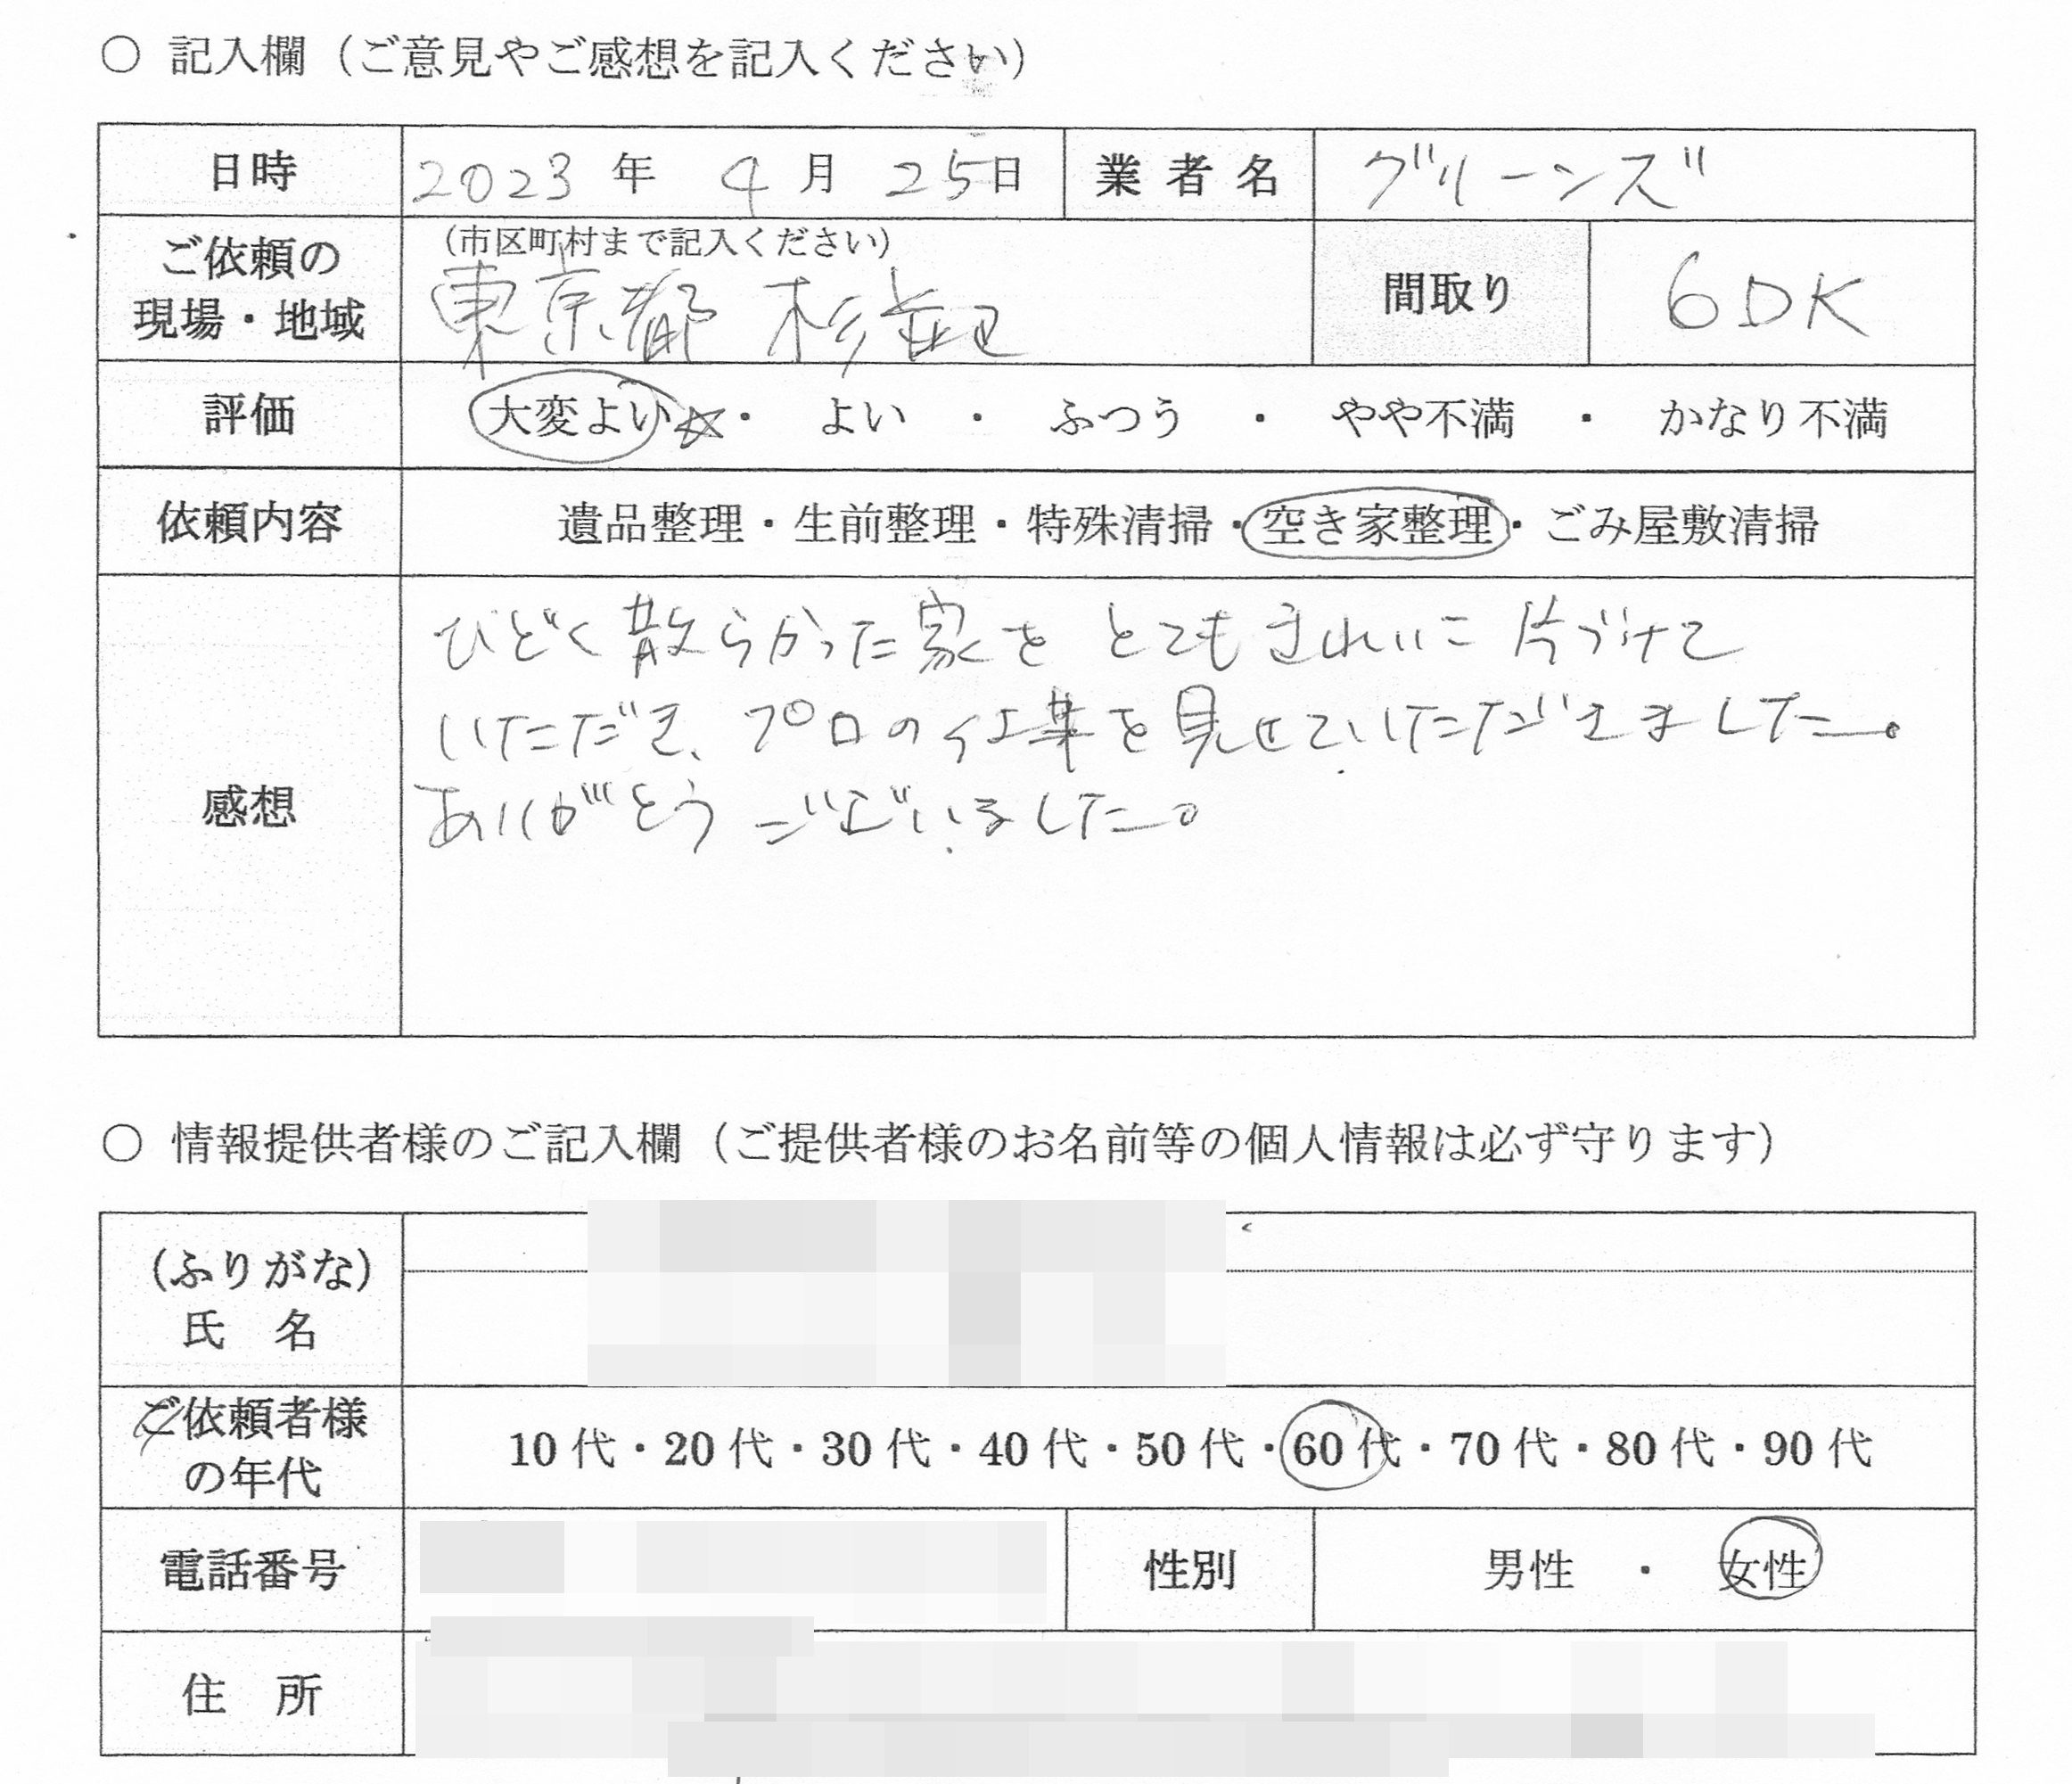 ○ 記入欄（ご意見やご感想を記入ください）
日時 2023 年 4 月 25日 業者名 グリーンズ
ご依頼の
現場・地域
(市区町村まで記入ください)
東京都 杉並区
間取り 6DK
評価 大変よい☆・ よい ・ ふつう ・ やや不満 ・ かなり不満
依頼内容 遺品整理・生前整理・特殊清掃・空き家整理・ごみ屋敷清掃
感想
ひどく散らかった家を とてもきれいに 片づけて
いただき、プロの仕業を見せていただきました。
ありがとう ございました。
○ 情報提供者様のご記入欄（ご提供者様のお名前等の個人情報は必ず守ります）
（ふりがな）
氏 名
ご依頼者様
の年代
10 代・20 代・30 代・40 代・50 代・60 代・70 代・80 代・90 代
電話番号 性別 男性 ・ 女性
住 所